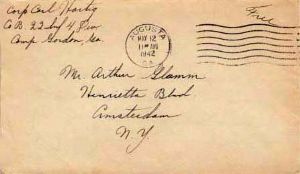 Corp Carl Hartig
Co B. 22 Inf 4 Div
Camp Gordon, Ga
AUGUSTA
MAY 12
11 AM
1942
GA.
Free
Mr. Arthur Glamm
Henrietta Blvd
Amsterdam
N.Y.